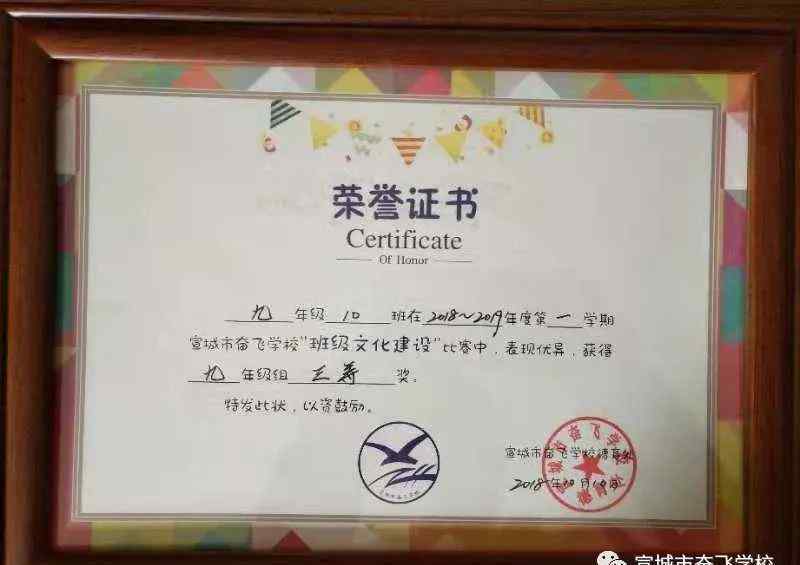 荣誉证书
Certificate
Of Honor
九 年级 10 班在 2018~2019年度第 一 学期
宣城市奋飞学校"班级文化建设"比赛中，表现优异，获得
九 年级组 三等 奖。
特发此状，以资鼓励。
宣城市奋飞学校德育处
2018年10月10日
宣城市奋飞学校